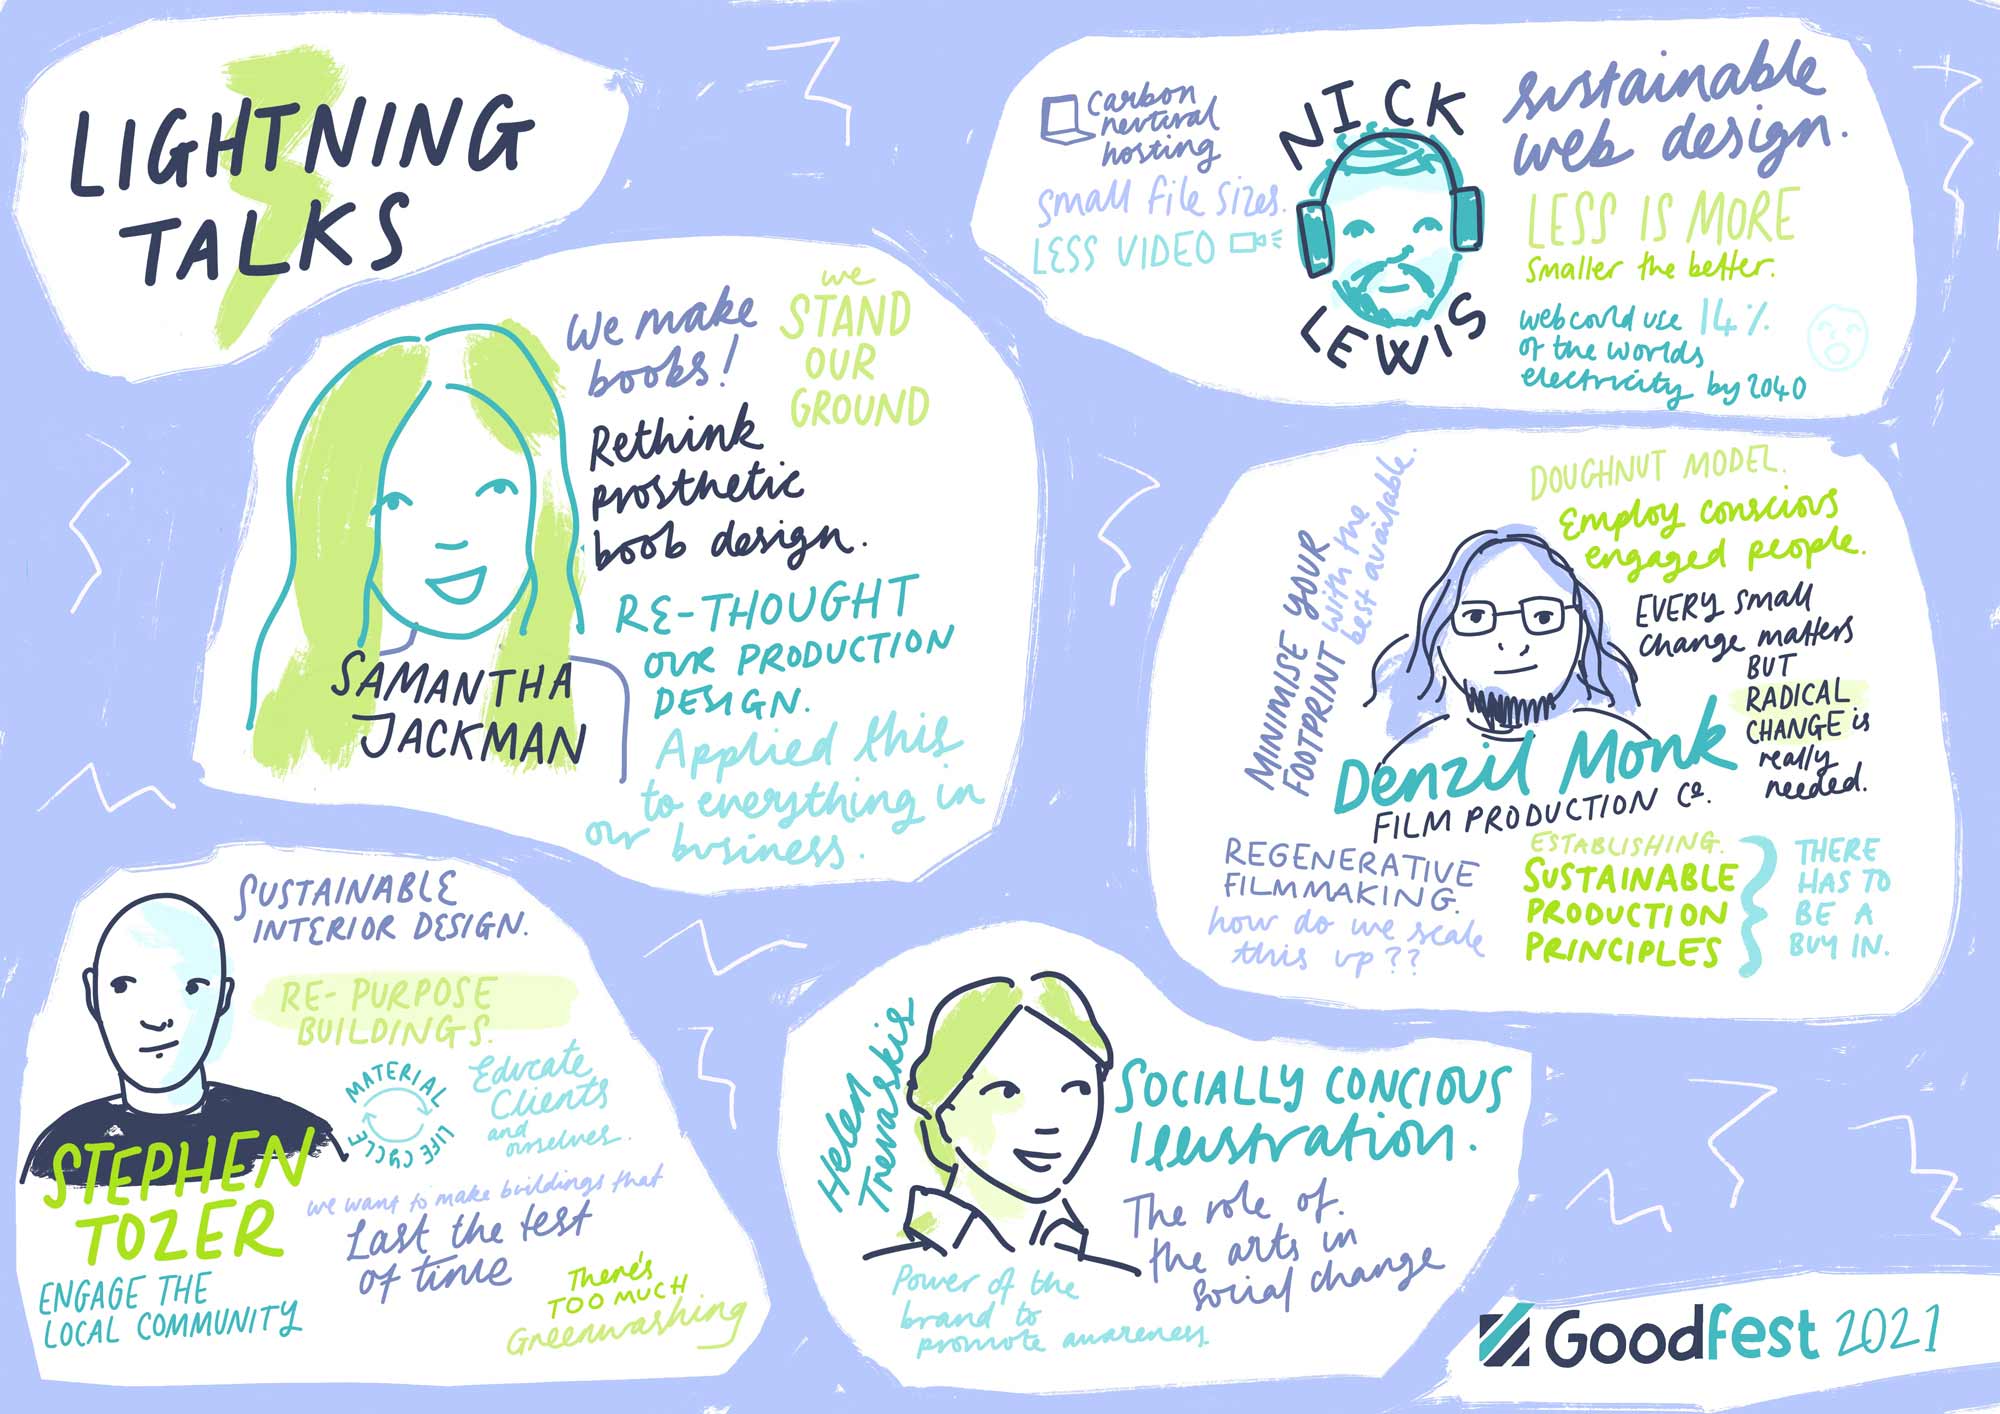 LIGHTNING
TALKS
we make
books!
we
STAND
OUR
GROUND
Rethink
prosthetic
boob design.
RE-THOUGHT
OUR PRODUCTION
DESIGN.
Applied this
to everything in
our business.
SAMANTHA
JACKMAN
carbon
nertural
hosting
Small file sizes.
LESS VIDEO
NICK
LEWIS
sustainable
web design.
LESS IS MORE
Smaller the better.
web could use 14%
of the worlds
electricity by 2040
MINIMISE YOUR
FOOTPRINT with the
best available.
DOUGHNUT MODEL.
Employ conscious
engaged people.
EVERY small
change matters
BUT
RADICAL
CHANGE is
really
needed.
Denzil Monk
FILM PRODUCTION Co.
REGENERATIVE
FILMMAKING.
how do we scale
this up??
ESTABLISHING.
SUSTAINABLE
PRODUCTION
PRINCIPLES
THERE
HAS TO
BE A
BUY IN.
SUSTAINABLE
INTERIOR DESIGN.
RE-PURPOSE
BUILDINGS.
MATERIAL
LIFE CYCLE
Educate
Clients
and
ourselves.
STEPHEN
TOZER
we want to make buildings that
Last the test
of time
ENGAGE THE
LOCAL COMMUNITY
There's
TOO MUCH
Greenwashing
Helen
Trevaskis
SOCIALLY CONCIOUS
Illustration.
The role of.
the arts in
social change
Power of the
brand to
promote awareness.
Goodfest 2021